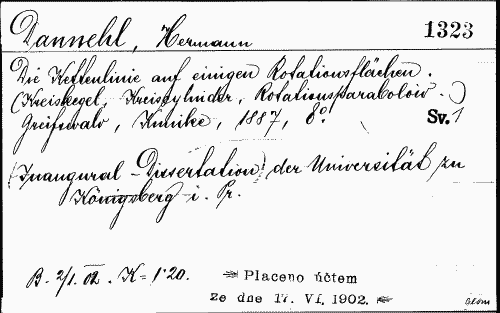 Dannehl, Hermann
1323
Die Kettenlinie auf einigen Rotationsflächen.
(Kreiskegel, Kreiscylinder, Rotationsparaboloid.)
Greifswald, Kunike, 1887, 8°.
Sv. 1
(Inaugural-Dissertation) der Universität zu
Königsberg i. Pr.
B. 2/1. 02. K = 1·20.
Placeno účtem
ze dne 17. VI. 1902.